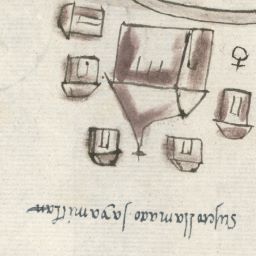 Sujeto llamado Jayamitla